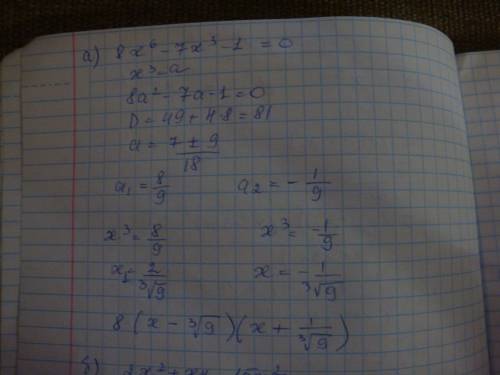 а) 8x⁶ - 7x³ - 1 = 0
x³ = a
8a² - 7a - 1 = 0
D = 49 + 4·8 = 81
a = (7 ± 9)/18
a₁ = 8/9 a₂ = - 1/9
x³ = 8/9 x³ = -1/9
x₁ = 2/∛9 x = - 1/∛9
8 (x - ∛9)(x + 1/∛9)